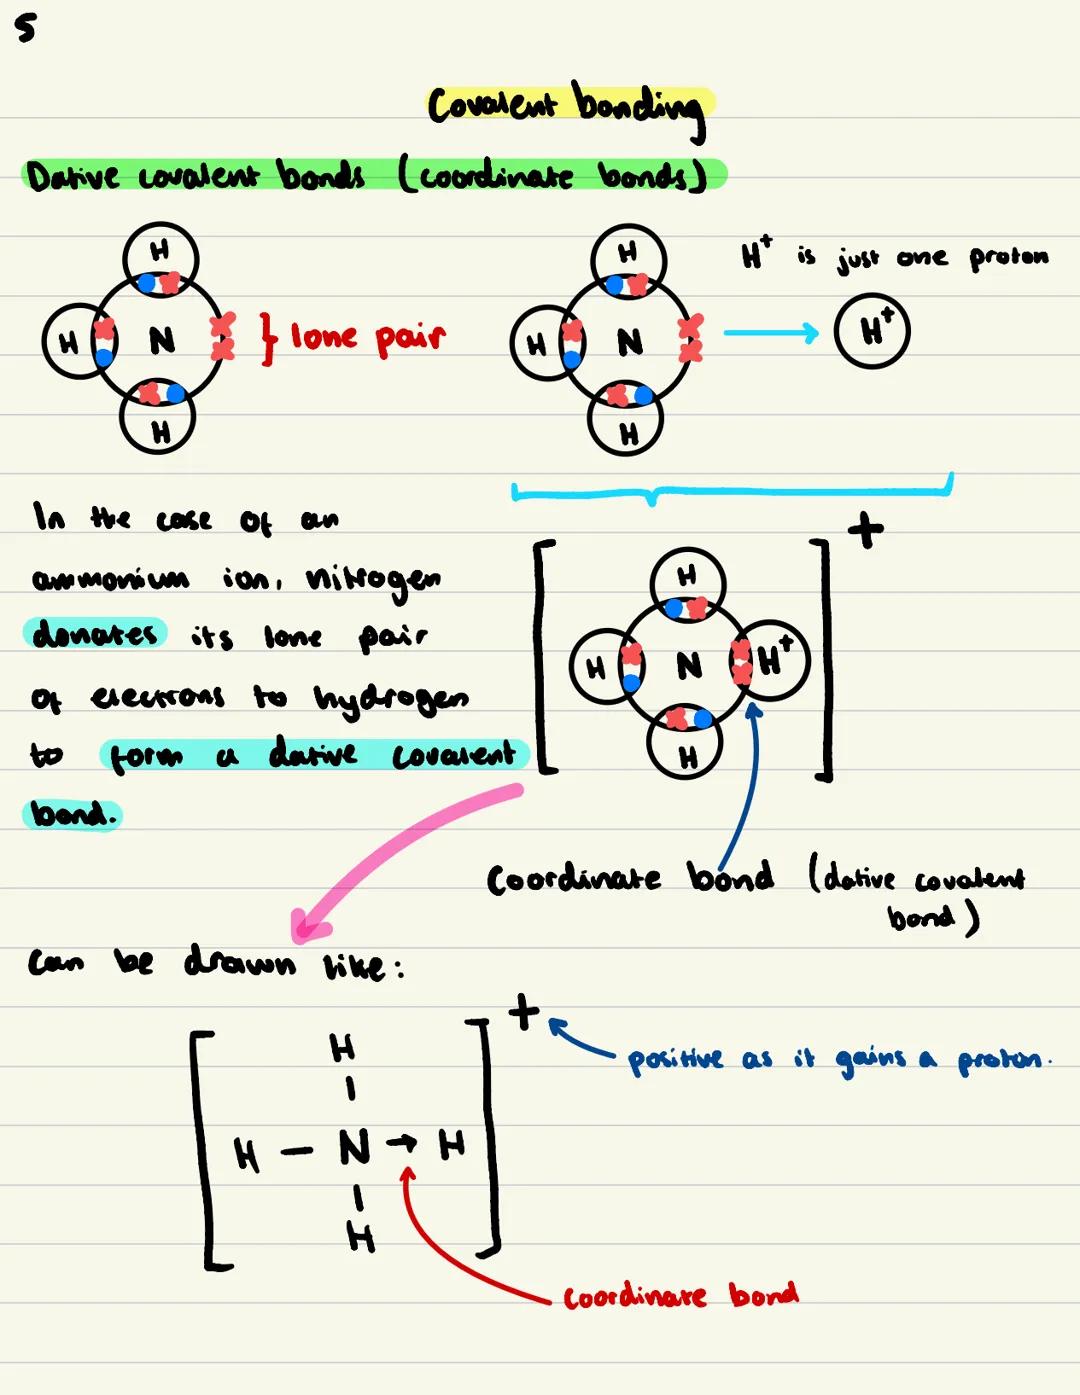 5
Covalent bonding
Dative covalent bonds (coordinate bonds)
H
H N
H
} lone pair
H
H N
H
H⁺ is just one proton
H⁺
In the case of an
ammonium ion, nitrogen
donates its lone pair
of electrons to hydrogen
to form a dative covalent
bond.
+
H
H N H⁺
H
Coordinate bond (dative covalent
bond)
can be drawn like:
+
H
H – N → H
H
positive as it gains a proton.
coordinate bond